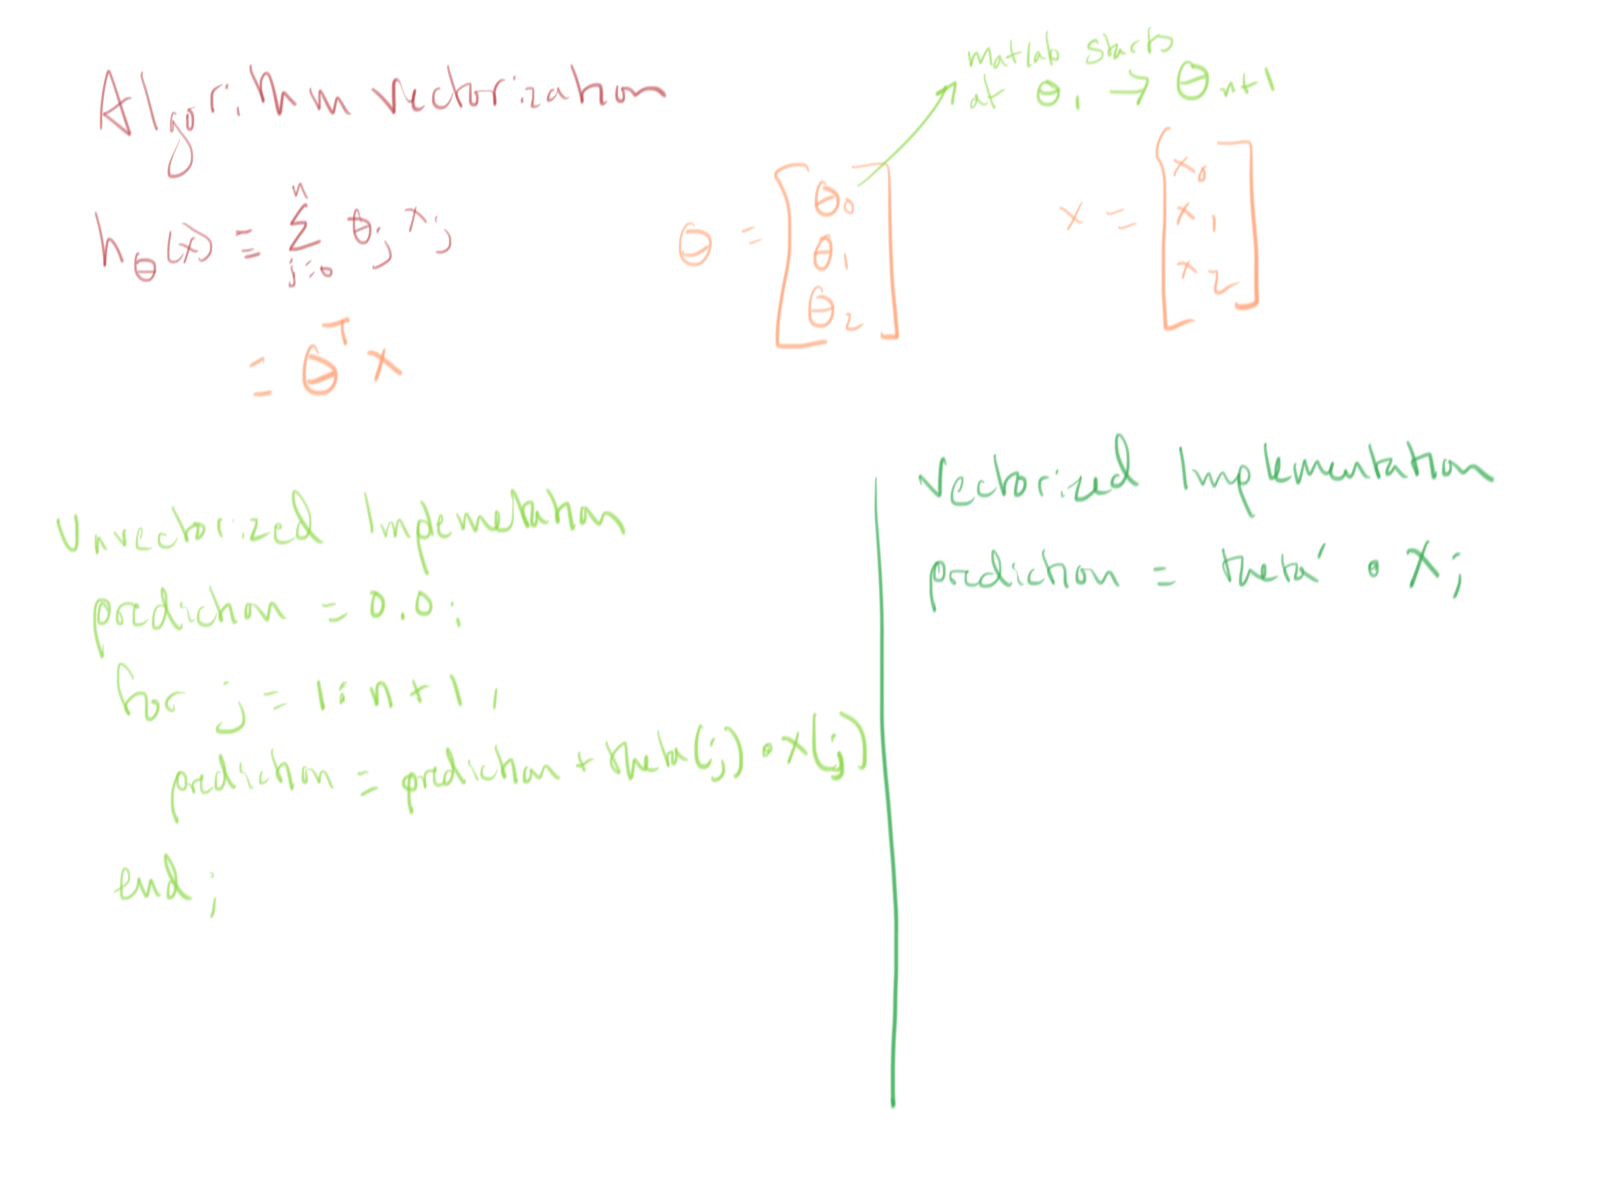 Algorithm vectorization
matlab starts
at θ₁ → θₙ₊₁
h_θ(x) = Σ_{j=0}^{n} θ_j x_j
= θᵀ x
θ = [θ₀
θ₁
θ₂]
x = [x₀
x₁
x₂]
Unvectorized Implemetation
prediction = 0.0;
for j = 1:n+1,
prediction = prediction + theta(j) ∘ x(j)
end;
Vectorized Implementation
prediction = theta' ∘ X;